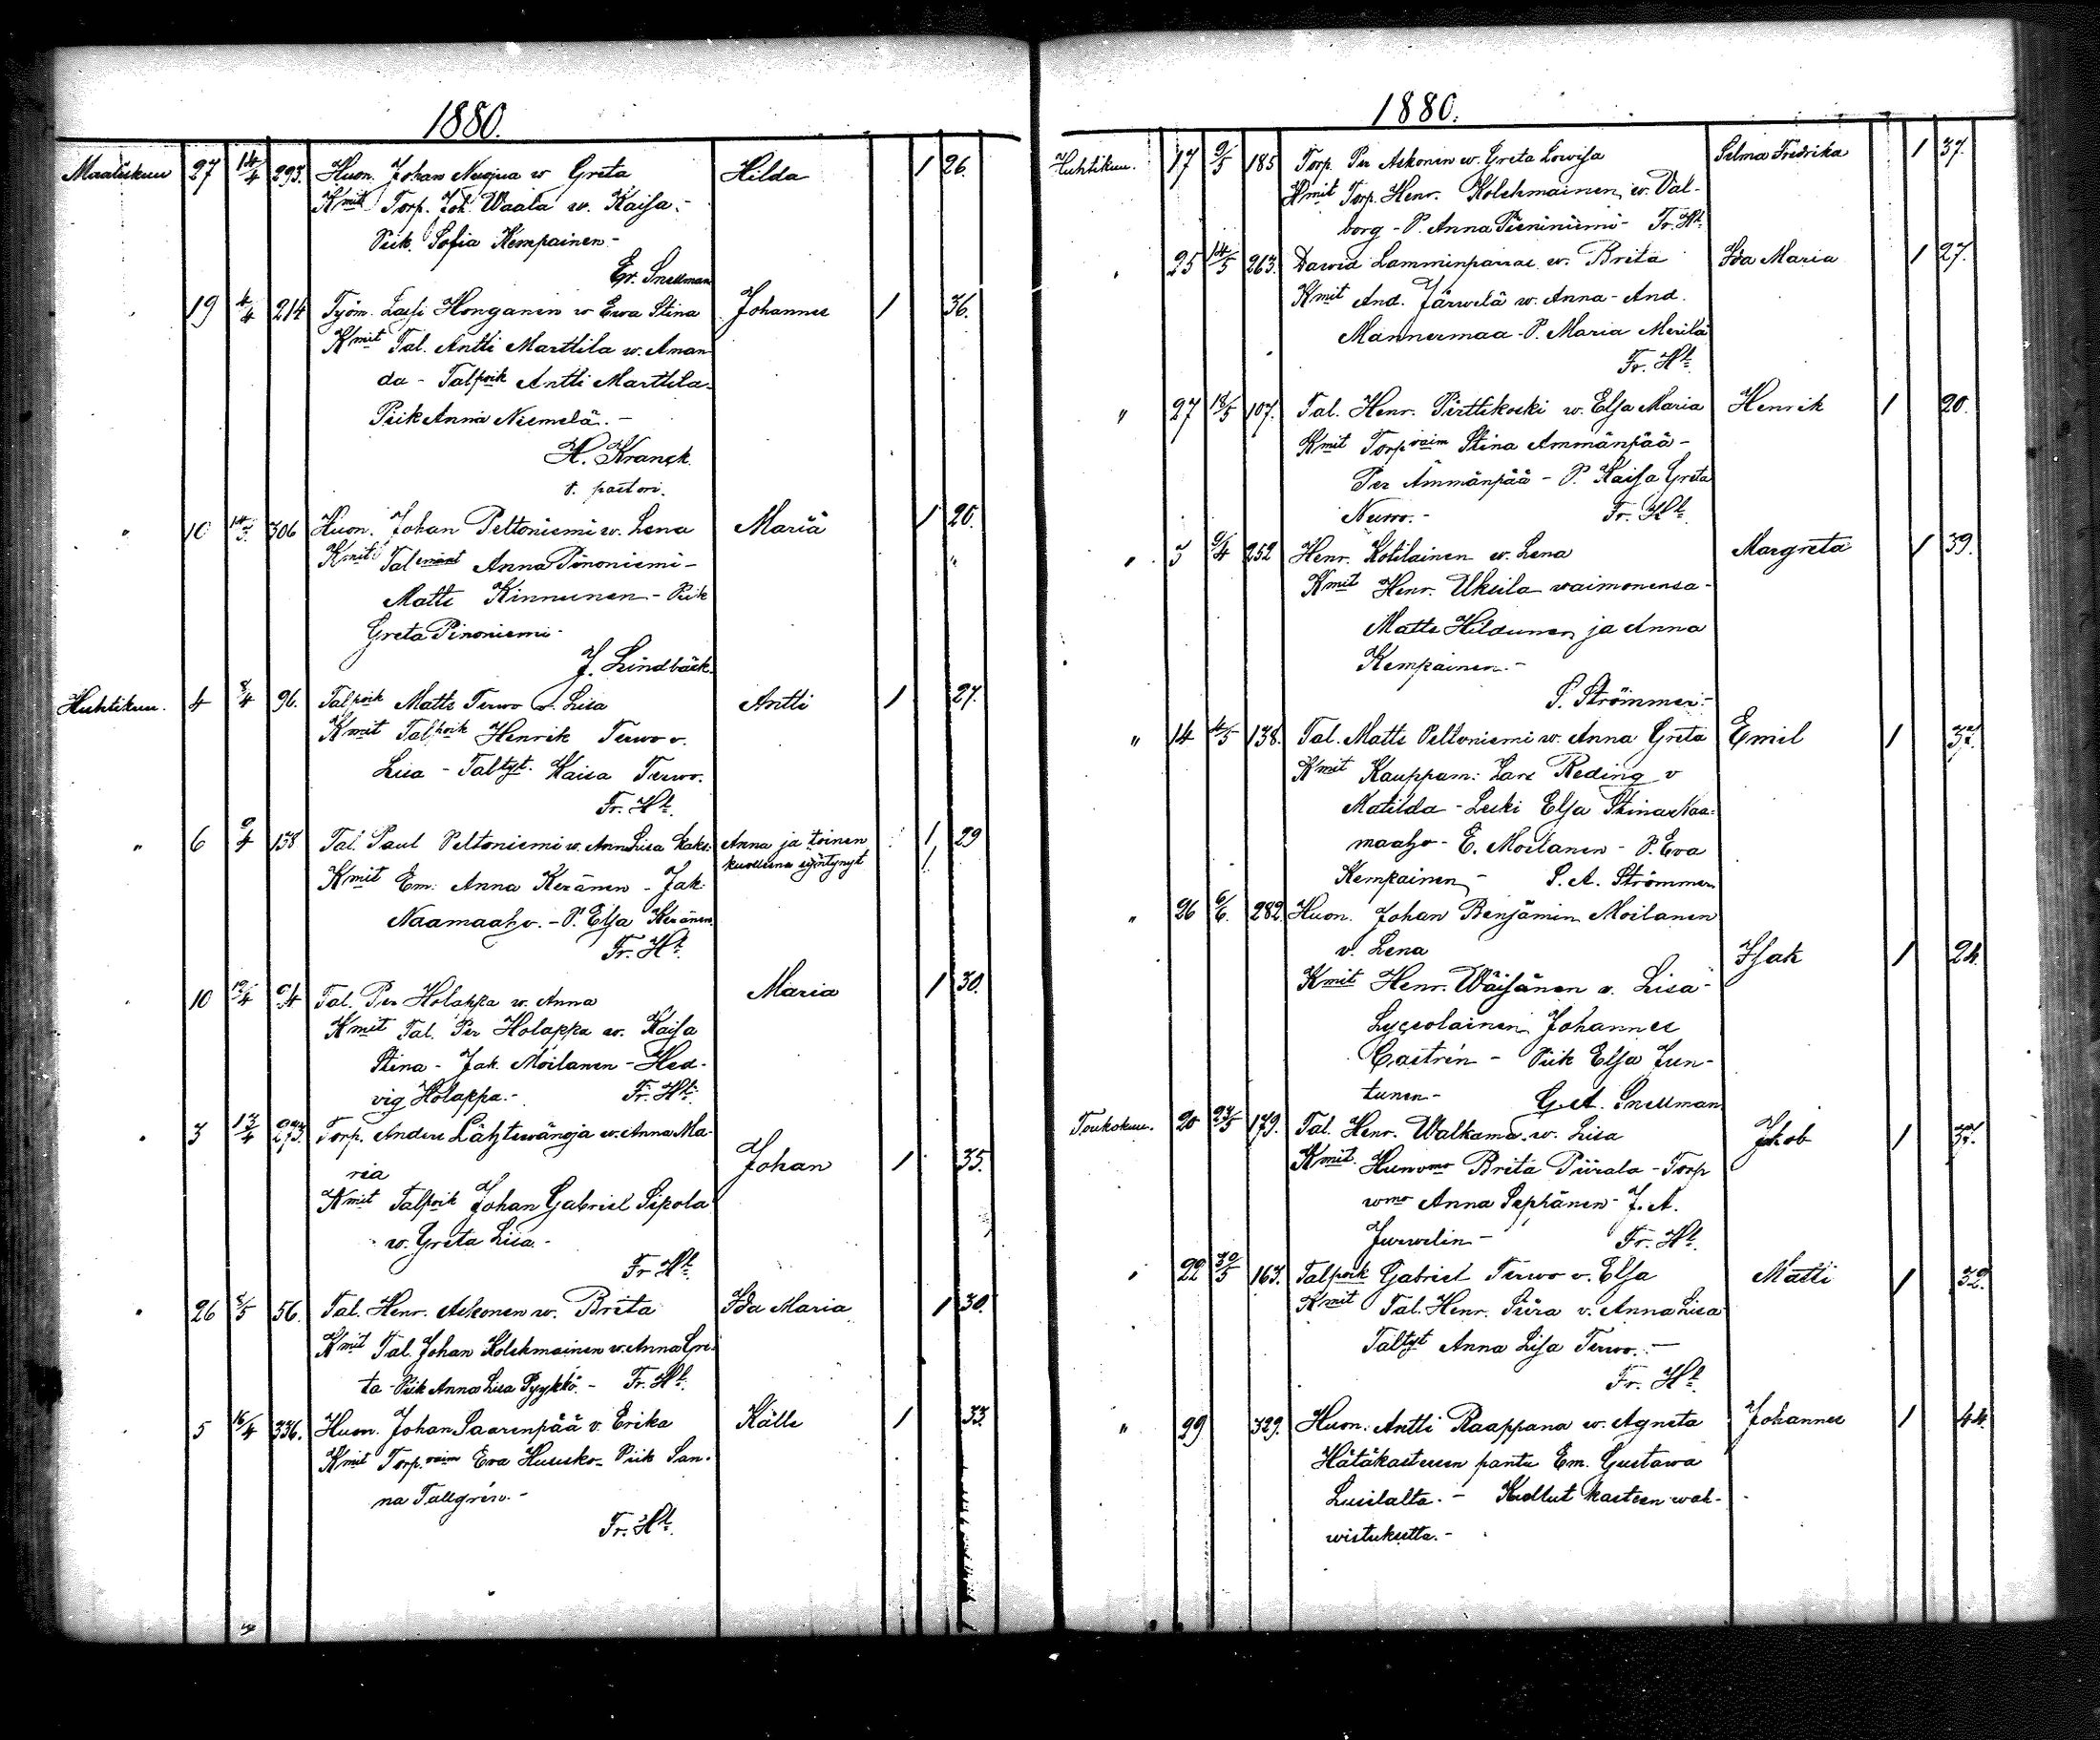 1880.
Maaliskuu 27 14/4 293. Huon. Johan Neujua w Greta Hilda 1 26.
Kmit Torp. Joh. Waala w. Kaisa.-
Piik. Sofia Kempainen-
Er. Snellman
19 4/4 214 Työm. Lassi Honganen w Ewa Stina Johannes 1 36.
Kmit Tal. Antti Marttila w. Aman
da - Talpoik Antti Marttila-
Piik Anna Niemelä.-
H. Kranck.
v. pastori.
" 10 306 Huon. Johan Peltoniemi w. Lena Maria 1 20.
Kmit Talemänt Anna Pinoniemi- "
Matts Kinnunen - Piik
Greta Pinoniemi-
J. Lindbäck.
Huhtikuu. 4 8/4 96. Talpoik Matts Terwo v. Liisa Antti 1 27.
Kmit Talpoik Henrik Terwo v.
Liisa - Taltyt. Kaisa Terwo.
Fr. Hh.
" 6 9/4 138 Tal. Paul Peltoniemi w. Ann Liisa Kaks: Anna ja toinen 1 29
kuolleena syntynyt 1
Kmit Em: Anna Keränen - Jak:
Naamaaho. - P. Elsa Keränen
Fr. Hh.
10 Tal. Per Holappa w. Anna Maria 1 30.
Kmit Tal. Per Holappa w. Kaisa
Stina - Jak. Moilanen - Hed-
vig Holappa.- Fr. Hh.
" 3 13/4 273. Torp. Anders Lähtewänoja w. Anna Ma-
ria Johan 1 35.
Kmit Talpoik Johan Gabriel Sipola
w. Greta Liisa.-
Fr Hh.
" 26 8/5 56. Tal. Henr. Askonen w. Brita Ida Maria 1 30.
Kmit Tal. Johan Kolehmainen w. Anna Gre-
ta - Piik Anna Liisa Pyykkö.- Fr. Hh.
5 16/4 336. Huon. Johan Saarenpää v. Erika Kalle 1 33.
Kmit Torp. vaim Eva Huusko- Piik San-
na Tallgrén.-
Fr. Hh.
1880.
Huhtikuu. 17 9/5 185 Torp. Per Askonen w. Greta Lowisa Selma Fredrika 1 37.
Kmit Torp. Henr. Kolehmainen w. Val-
borg - P. Anna Pieniniemi- Fr. Hh.
" 25 14/5 263. Dawid Lamminparras w. Brita Ida Maria 1 27.
Kmit And. Järwelä w. Anna - And.
Mannermaa - P. Maria Merilä
Fr. Hh.
" 27 18/5 107. Tal. Henr. Pirttikoski w. Elsa Maria Henrik 1 20.
Kmit Torpvaim Stina Ämmänpää-
Per Ämmänpää - P. Kaisa Greta
Nurro.- Fr. Hh.
" 3 9/4 252 Henr. Kotilainen w. Lena Margreta 1 39.
Kmit Henr. Ukkila waimonensa-
Matts Hildunen ja Anna
Kempainen.-
P. Strömmer.-
" 14 4/5 138. Tal. Matts Peltoniemi w. Anna Greta Emil 1
Kmit Kauppam: Lars Reding v
Matilda - Leski Elsa Stina Naa-
maaho- E. Moilanen - P. Eva
Kempainen,- P. A. Strömmer
" 26 6/6. 282. Huon. Johan Benjamin Moilanen
v. Lena Isak 1 24.
Kmit Henr. Wäisänen v. Liisa-
Lyceolainen Johannes
Castrén - Piik Elsa Jun-
tunen- G. A. Snellman
Toukokuu. 20 23/5 179. Tal. Henr. Walkama. w. Liisa Jakob 1
Kmit. Huonwmo Brita Piirala - Torp
wmo Anna Seppänen- J. A.
Jurwelin- Fr. Hh.
" 22 30/5 163. Talpoik Gabriel Terwo v. Elsa Matti 1 32.
Kmit Tal. Henr. Siira v. Anna Liisa
Taltyt Anna Lisa Terwo.-
Fr. Hh.
" 29 329. Huon. Antti Raappana w. Agneta Johannes 1 44.
Hätäkasteesen pantu Em. Gustawa
Lusilalta. - Kuollut kasteen wah-
wistuksetta.-